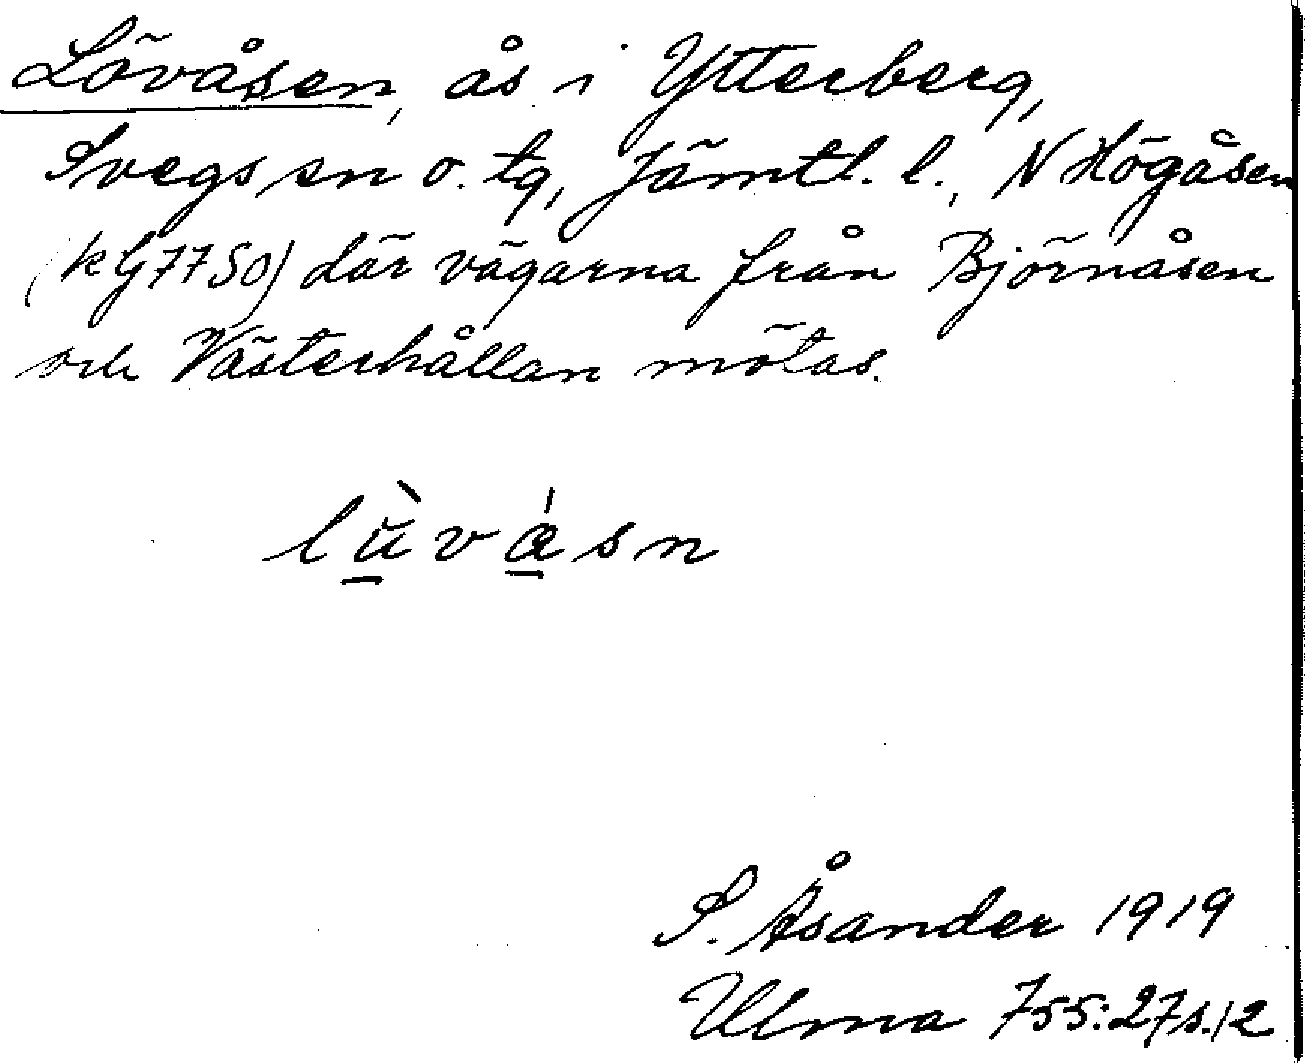 Lövåsen, ås i Ytterberg,
Svegs sn o. tg, Jämtl. l., N Högåsen
(kG7750) där vägarna från Björnåsen
och Västerhållan mötas.
lùvásn
S. Åsander 1919
Ulma 755:27 s.12